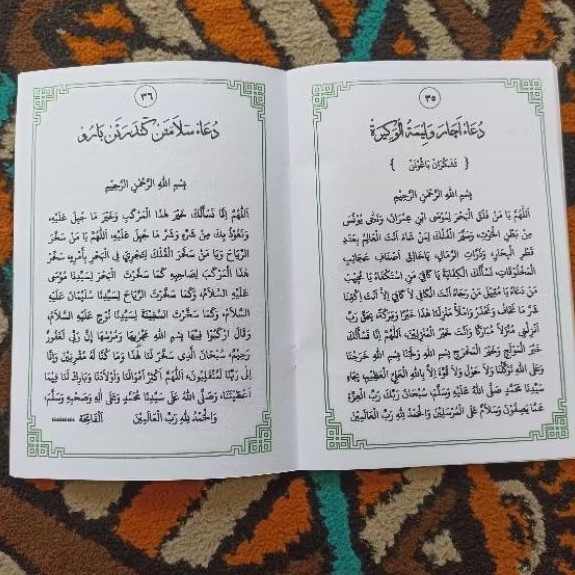 ٣٥
دُعَاء اَچَارا وَلِيمَةُ الْوَكِيْرَةْ
{ تَدَكّٰرَان بَاڠُونَن }
بِسْمِ اللهِ الرَّحْمٰنِ الرَّحِيْمِ
اَللّٰهُمَّ يَا مَنْ فَلَقَ الْبَحْرَ لِمُوسَى ابْنِ عِمْرَانَ، وَنَجَّى يُوْنُسَ
مِنْ بَطْنِ الْحُوْتِ، وَسَيَّرَ الْفُلْكَ لِمَنْ شَاءَ اَنْتَ الْعَالِمُ بِعَدَدِ
قَطْرِ الْبِحَارِ، وَذَرَّاتِ الرِّمَالِ، يَاخَالِقَ اَصْنَافِ عَجَائِبِ
الْمَخْلُوْقَاتِ، نَسْأَلُكَ الْكِفَايَةَ يَا كَافِيَ مَنِ اسْتَكْفَاهُ يَا مُجِيْبَ
مَنْ دَعَاهُ يَا مُقِيْلَ مَنْ رَجَاهُ اَنْتَ الْكَافِي لَا كَافِيَ اِلَّا اَنْتَ اِكْفِنَا
شَرَّ مَا نَخَافُ وَنَحْذَرُ وَامْلَأْ مَنْزِلَنَا هٰذَا خَيْرًا وَبَرَكَةً، بِحَقِّ رَبِّ
اَنْزِلْنِي مُنْزَلًا مُبَارَكًا وَاَنْتَ خَيْرُ الْمُنْزِلِيْنَ، اَللّٰهُمَّ اِنَّا نَسْأَلُكَ
خَيْرَ الْمَوْلَجِ وَخَيْرَ الْمَخْرَجِ بِسْمِ اللهِ وَلَجْنَا بِسْمِ اللهِ خَرَجْنَا
وَعَلَى اللهِ تَوَكَّلْنَا وَلَا حَوْلَ وَلَا قُوَّةَ اِلَّا بِاللهِ الْعَلِيِّ الْعَظِيْمِ، بِجَاهِ
سَيِّدِنَا مُحَمَّدٍ صَلَّى اللهُ عَلَيْهِ وَسَلَّمَ، سُبْحَانَ رَبِّكَ رَبِّ الْعِزَّةِ
عَمَّا يَصِفُوْنَ وَسَلَامٌ عَلَى الْمُرْسَلِيْنَ وَالْحَمْدُ لِلّٰهِ رَبِّ الْعَالَمِيْنَ
٣٦
دُعَاء سَلَامَتَن كَنْدَرَأَن بَارُو
بِسْمِ اللهِ الرَّحْمٰنِ الرَّحِيْمِ
اَللّٰهُمَّ اِنَّا نَسْأَلُكَ خَيْرَ هٰذَا الْمَرْكَبِ وَخَيْرَ مَا جُبِلَ عَلَيْهِ،
وَنَعُوْذُ بِكَ مِنْ شَرِّهِ وَشَرِّ مَا جُبِلَ عَلَيْهِ، اَللّٰهُمَّ يَا مَنْ سَخَّرَ
الرِّيَاحَ وَيَا مَنْ سَخَّرَ الْفُلْكَ لِتَجْرِيَ فِي الْبَحْرِ بِأَمْرِهِ سَخِّرْ
هٰذَا الْمَرْكَبَ لِصَاحِبِهِ كَمَا سَخَّرْتَ الْبَحْرَ لِسَيِّدِنَا مُوْسَى
عَلَيْهِ السَّلَامُ، وَكَمَا سَخَّرْتَ الرِّيَاحَ لِسَيِّدِنَا سُلَيْمَانَ عَلَيْهِ
السَّلَامُ، وَكَمَا سَخَّرْتَ السَّفِيْنَةَ لِسَيِّدِنَا نُوْحٍ عَلَيْهِ السَّلَامُ،
وَقَالَ ارْكَبُوْا فِيْهَا بِسْمِ اللهِ مَجْرٰىهَا وَمُرْسٰهَا اِنَّ رَبِّي لَغَفُوْرٌ
رَحِيْمٌ، سُبْحَانَ الَّذِي سَخَّرَ لَنَا هٰذَا وَمَا كُنَّا لَهُ مُقْرِنِيْنَ وَاِنَّا
اِلَى رَبِّنَا لَمُنْقَلِبُوْنَ، اَللّٰهُمَّ اَكْثِرْ اَمْوَالَنَا وَاَوْلَادَنَا وَبَارِكْ لَنَا فِيْمَا
اَعْطَيْتَنَا، وَصَلَّى اللهُ عَلَى سَيِّدِنَا مُحَمَّدٍ وَعَلَى اٰلِهِ وَصَحْبِهِ وَسَلَّمَ،
وَالْحَمْدُ لِلّٰهِ رَبِّ الْعَالَمِيْنَ اَلْفَاتِحَةْ ..........